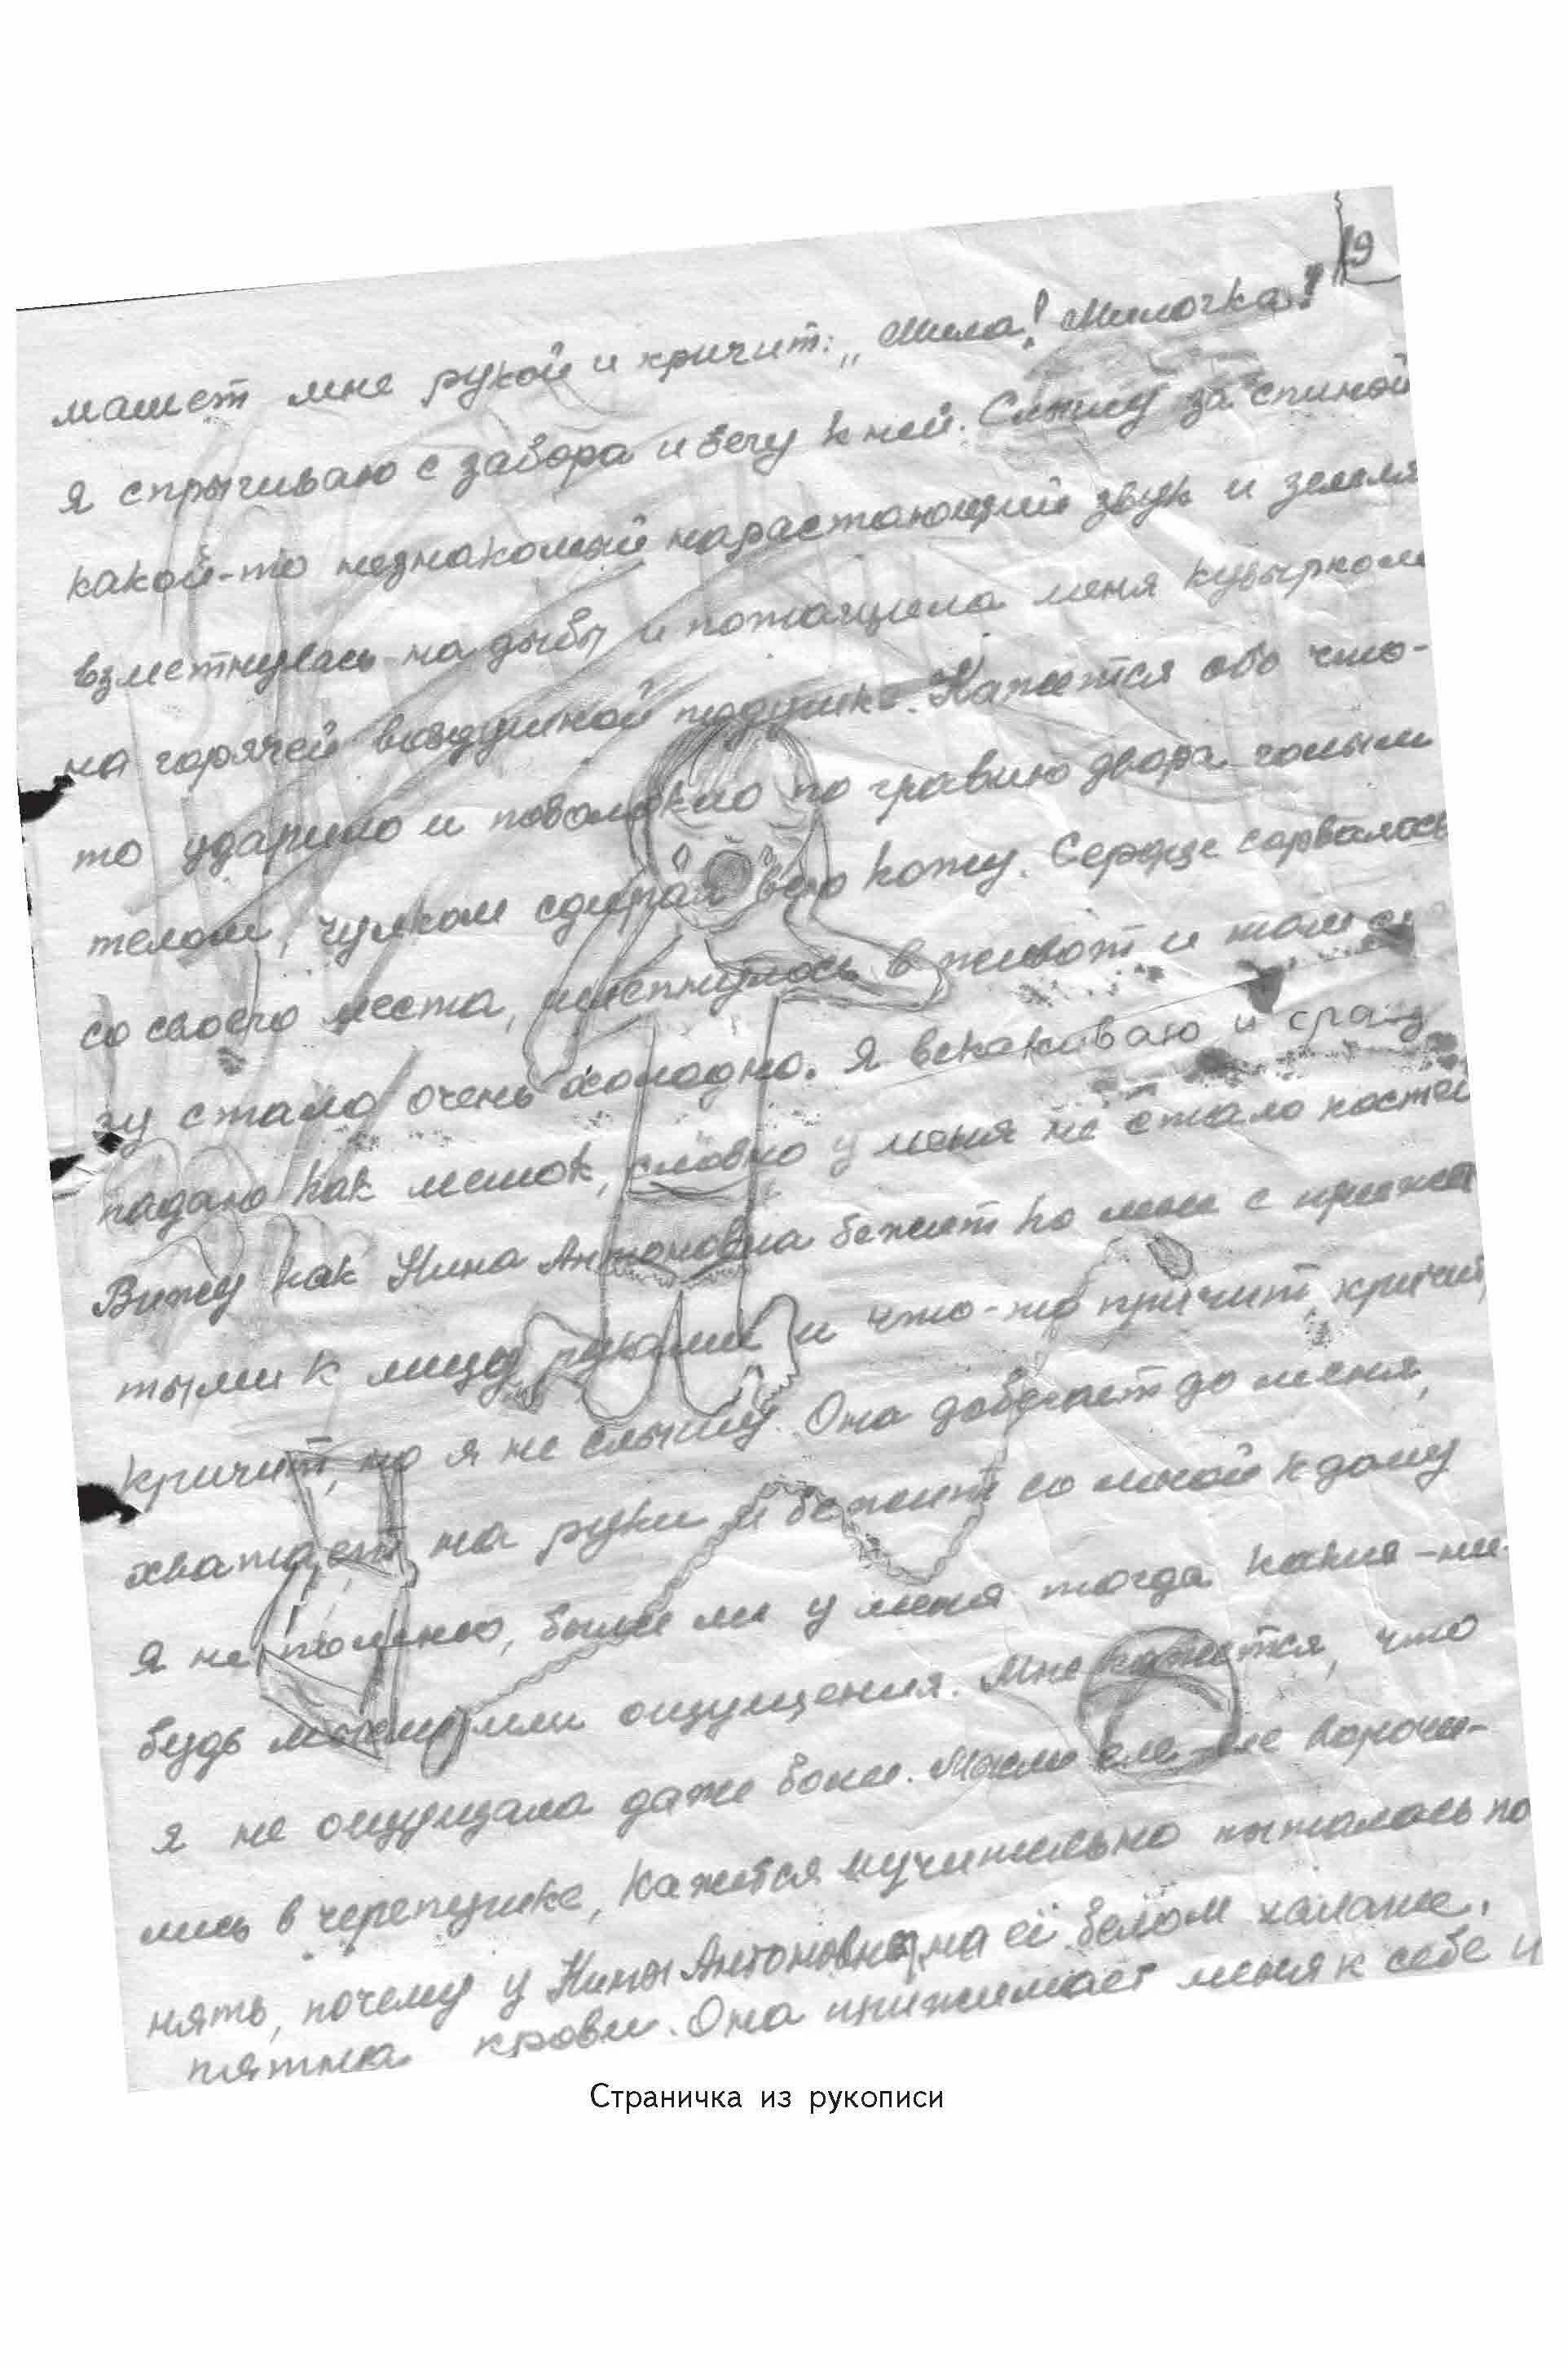 19
машет мне рукой и кричит: „Мила! Милочка!
Я спрыгиваю с забора и бегу к ней. Слышу за спиной
какой-то незнакомый нарастающий звук и земля
взметнулась на дыбы и потащила меня кувырком
на горячей воздушной подушке. Кажется обо что-
то ударило и поволокло по гравию двора голым
телом, чулком сдирая всю кожу. Сердце сорвалось
со своего места, шлепнулось в живот и там сра
зу стало очень холодно. Я вскакиваю и сразу
падаю как мешок, словно у меня не стало костей
Вижу как Нина Антоновна бежит ко мне с прижа
тыми к лицу руками и что-то кричит, кричит,
кричит, но я не слышу. Она добегает до меня,
хватает на руки и бежит со мной к дому
Я не помню, были ли у меня тогда какие-ни-
будь мысли или ощущения. Мне кажется, что
я не ощущала даже боли. Мысли еле-еле вороши-
лись в черепушке, кажется мучительно пыталась по
нять, почему у Нины Антоновны, на её белом халате,
пятна крови. Она прижимает меня к себе и
Страничка из рукописи